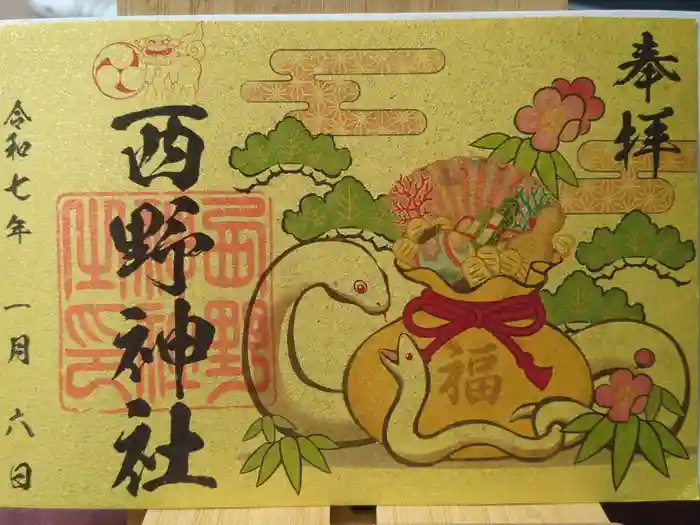 奉拝
福
西野神社
西野
神社
之印
令和七年 一月 六日